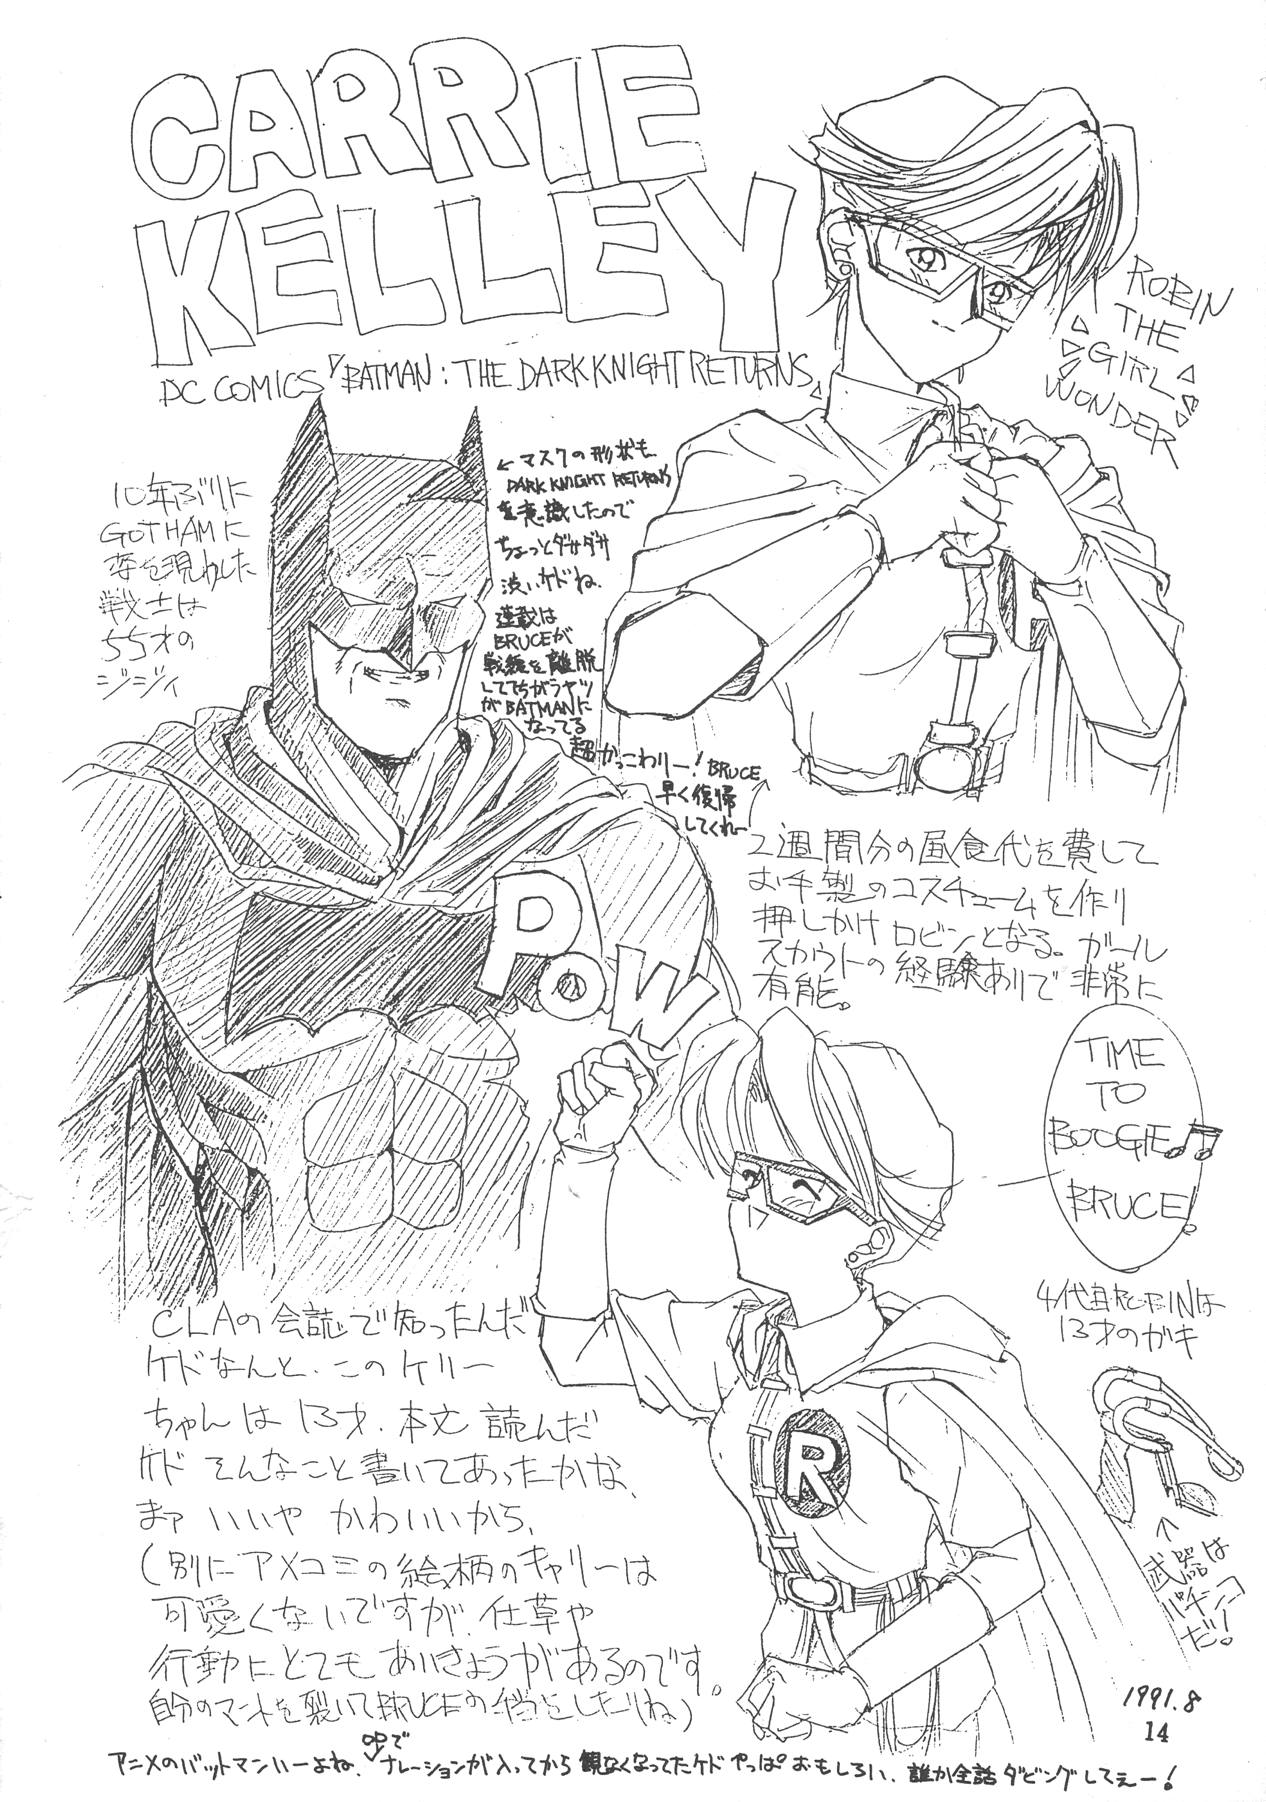 CARRIE
KELLEY
DC COMICS 『BATMAN : THE DARK KNIGHT RETURNS』
ROBIN
THE
GIRL
WONDER
10年ぶりに
GOTHAMに
姿を現わした
戦士は
55才の
ジジィ
←マスクの形状も
DARK KNIGHT RETURNS
を意識したので
ちょっとダサダサ
渋いケドね.
連載は
BRUCEが
戦線を離脱
してて
がBATMANに
なってる
超かっこわりー!BRUCE
早く復帰
してくれー
2週間分の昼食代を費して
お手製のコスチュームを作り
押しかけロビンとなる。ガール
スカウトの経験ありで非常に
有能。
POW
TIME
TO
BOOGIE♫
BRUCE!
4代目ROBINは
13才のガキ
R
↑
武器は
パチンコ
だ!
CLAの会誌で知ったんだ
ケドなんと、このケリー
ちゃんは13才.本文読んだ
ケドそんなこと書いてあったかな、
まァいいやかわいいから、
(別にアメコミの絵柄のキャリーは
可愛くないですが、仕草や
行動にとてもあいきょうがあるのです。
自分のマントを裂いてBRUCEの手当をしたりね)
1991.8
14
アニメのバットマンいーよね、OPでナレーションが入ってから観なくなってたケドやっぱおもしろい、誰か全話ダビングしてぇー!